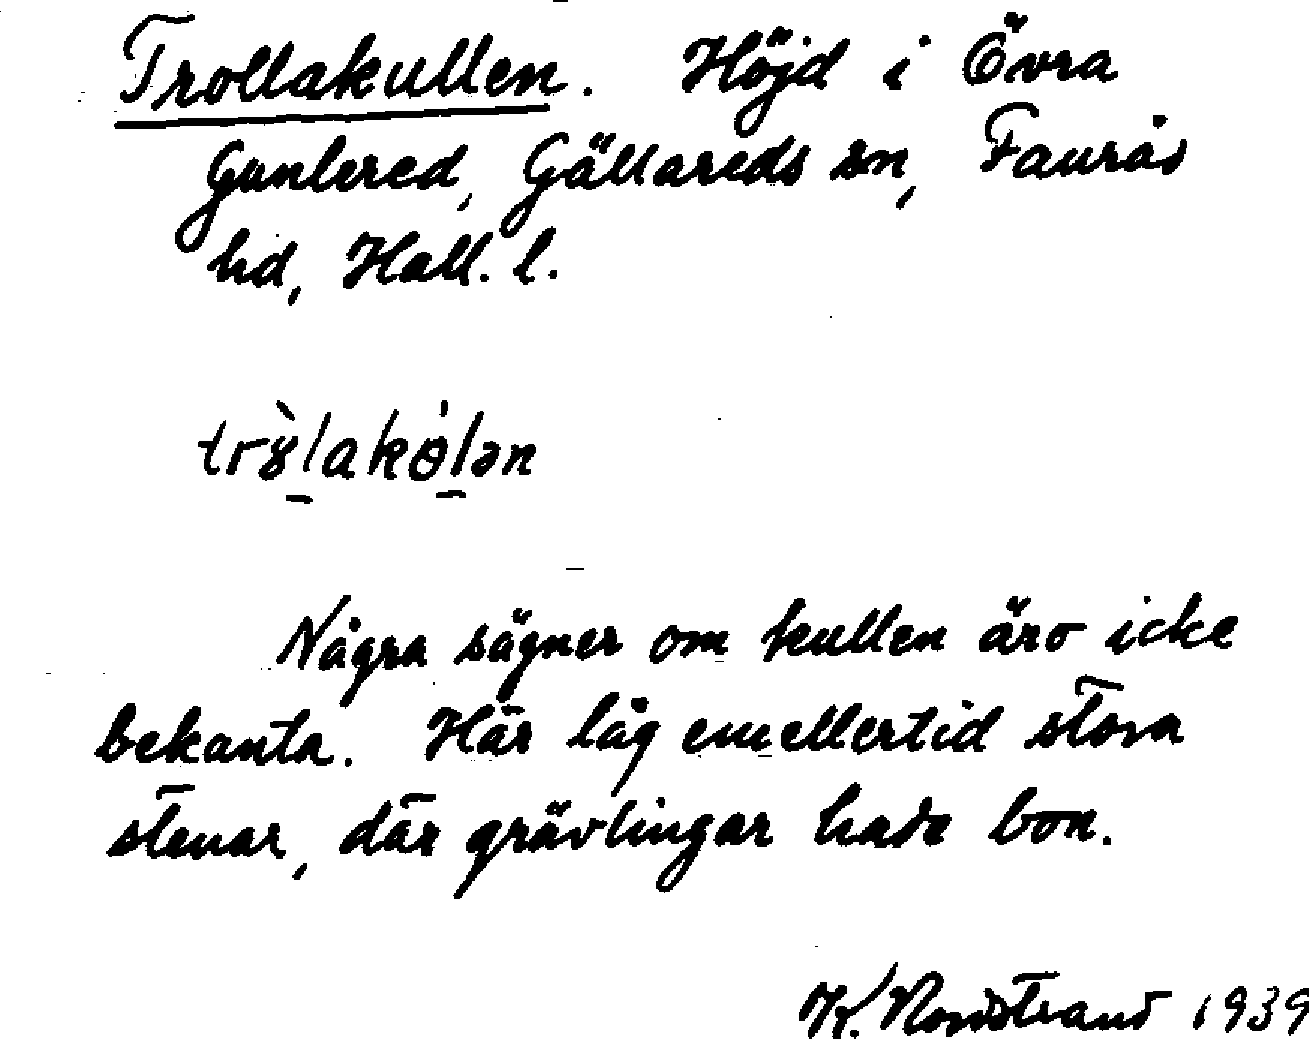 Trollakullen. Höjd i Övra
Gunbered, Gällareds sn, Faurås
hd, Hall. l.
trɤ̀lakɵ́lən
Några sägner om kullen äro icke
bekanta. Här låg emellertid stora
stenar, där grävlingar hade bon.
K. Nordstrand 1939